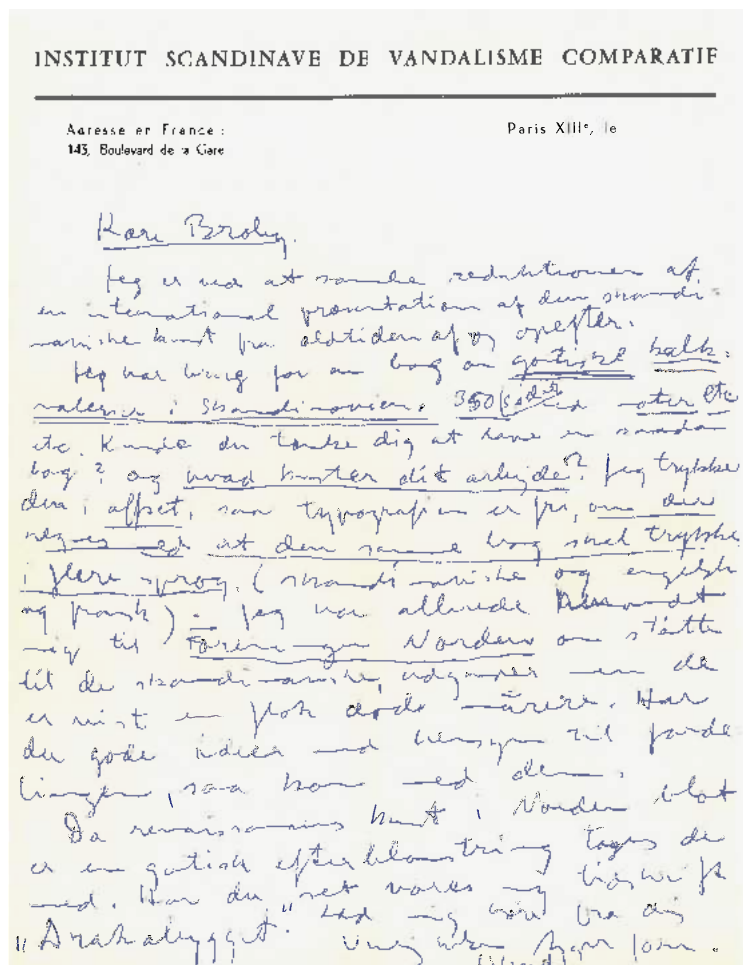 INSTITUT SCANDINAVE DE VANDALISME COMPARATIF
Adresse en France :
Paris XIIIe, le
143, Boulevard de la Gare
Kære Broby.
Jeg er ved at samle redaktionen af
en international præsentation af den skandi
naviske kunst fra oldtiden af og opefter.
Jeg har brug for en bog om gotiske kalk-
malerier i Skandinavien. 350 sider med noter etc
etc. Kunde du tænke dig at lave en saadan
bog? og hvad koster dit arbejde? Jeg trykker
den i offset, saa typografien er fri, om der
regnes med at den samme bog skal trykkes
i flere sprog. (skandinaviske og engelsk
og fransk). Jeg har allerede henvendt
mig til Foreningen Norden om støtte
til de skandinaviske udgaver men de
er vist en flok døde
du gode ideer med hensyn til forde
lingen, saa kom med dem.
Da renaissancens kunst i Norden blot
er en gotisk efterblomstring tages de
med. Har du set vores ny tidsskrift
"Drakabygget." Lad mig høre fra dig
Asger Jorn.